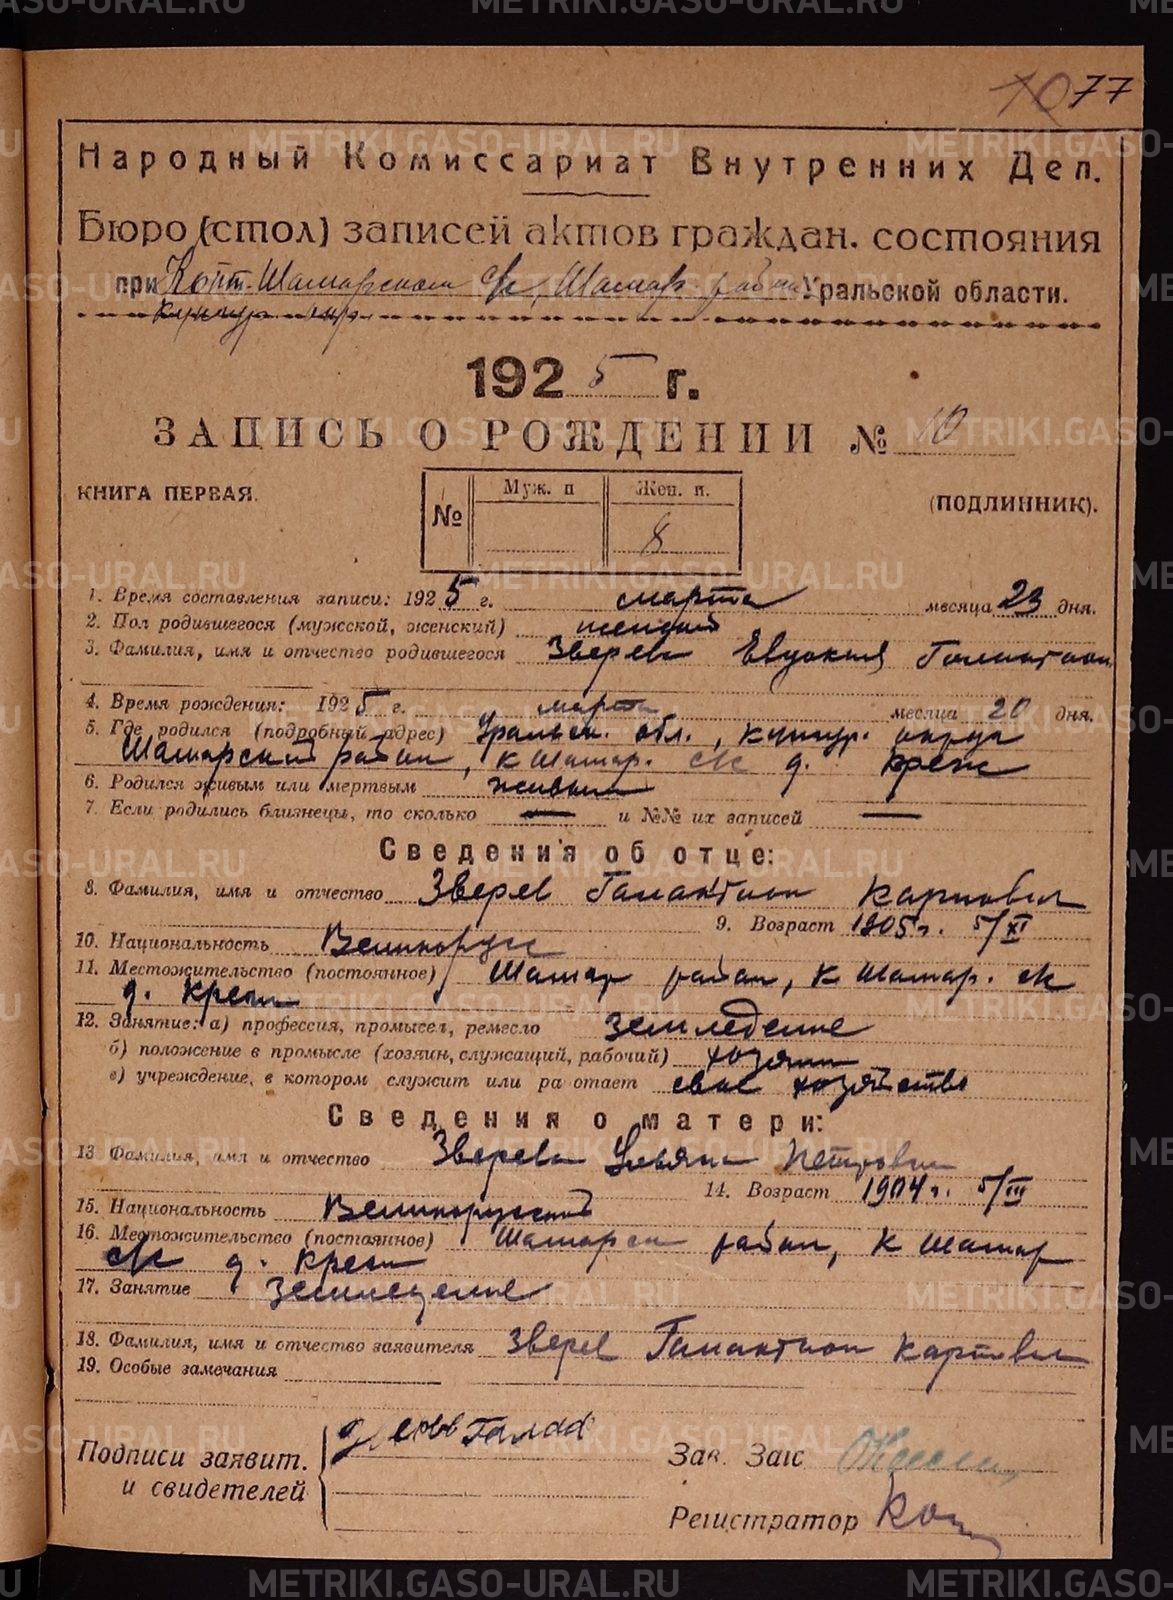 77
Народный Комиссариат Внутренних Дел.
Бюро (стол) записей актов граждан. состояния
при Шамарском с/с, Шамар. района Уральской области.
Кунгур. окр.
1925 г.
ЗАПИСЬ О РОЖДЕНИИ № 10
КНИГА ПЕРВАЯ.
(ПОДЛИННИК).
№ Муж. п Жен. п.
8
1. Время составления записи: 1925 г. марта месяца 23 дня.
2. Пол родившегося (мужской, женский) женский
3. Фамилия, имя и отчество родившегося Зверева Евдокия Галактион
4. Время рождения: 1925 г. марта месяца 20 дня.
5. Где родился (подробный адрес) Уральск. обл., Кунгур. округа
Шамарский район, К Шамар. с/с д. Креж
6. Родился живым или мертвым живым
7. Если родились близнецы, то сколько — и №№ их записей —
Сведения об отце:
8. Фамилия, имя и отчество Зверев Галактион Карпович
9. Возраст 1905 г. 5/XI
10. Национальность Великорус
11. Местожительство (постоянное) Шамар район, К Шамар. с/с
д. Креж
12. Занятие: а) профессия, промысел, ремесло земледелие
б) положение в промысле (хозяин, служащий, рабочий) хозяин
в) учреждение, в котором служит или ра отает свое хозяйство
Сведения о матери:
13 Фамилия, имя и отчество Зверева Ульяна Петровна
14. Возраст 1904 г. 5/III
15. Национальность Великорусский
16. Местожительство (постоянное) Шамарск район, К Шамар
с/с д. Креж
17. Занятие Земледелие
18. Фамилия, имя и отчество заявителя Зверев Галактион Карпович
19. Особые замечания
Подписи заявит.
и свидетелей
Зав. Загс
Регистратор
METRIKI.GASO-URAL.RU